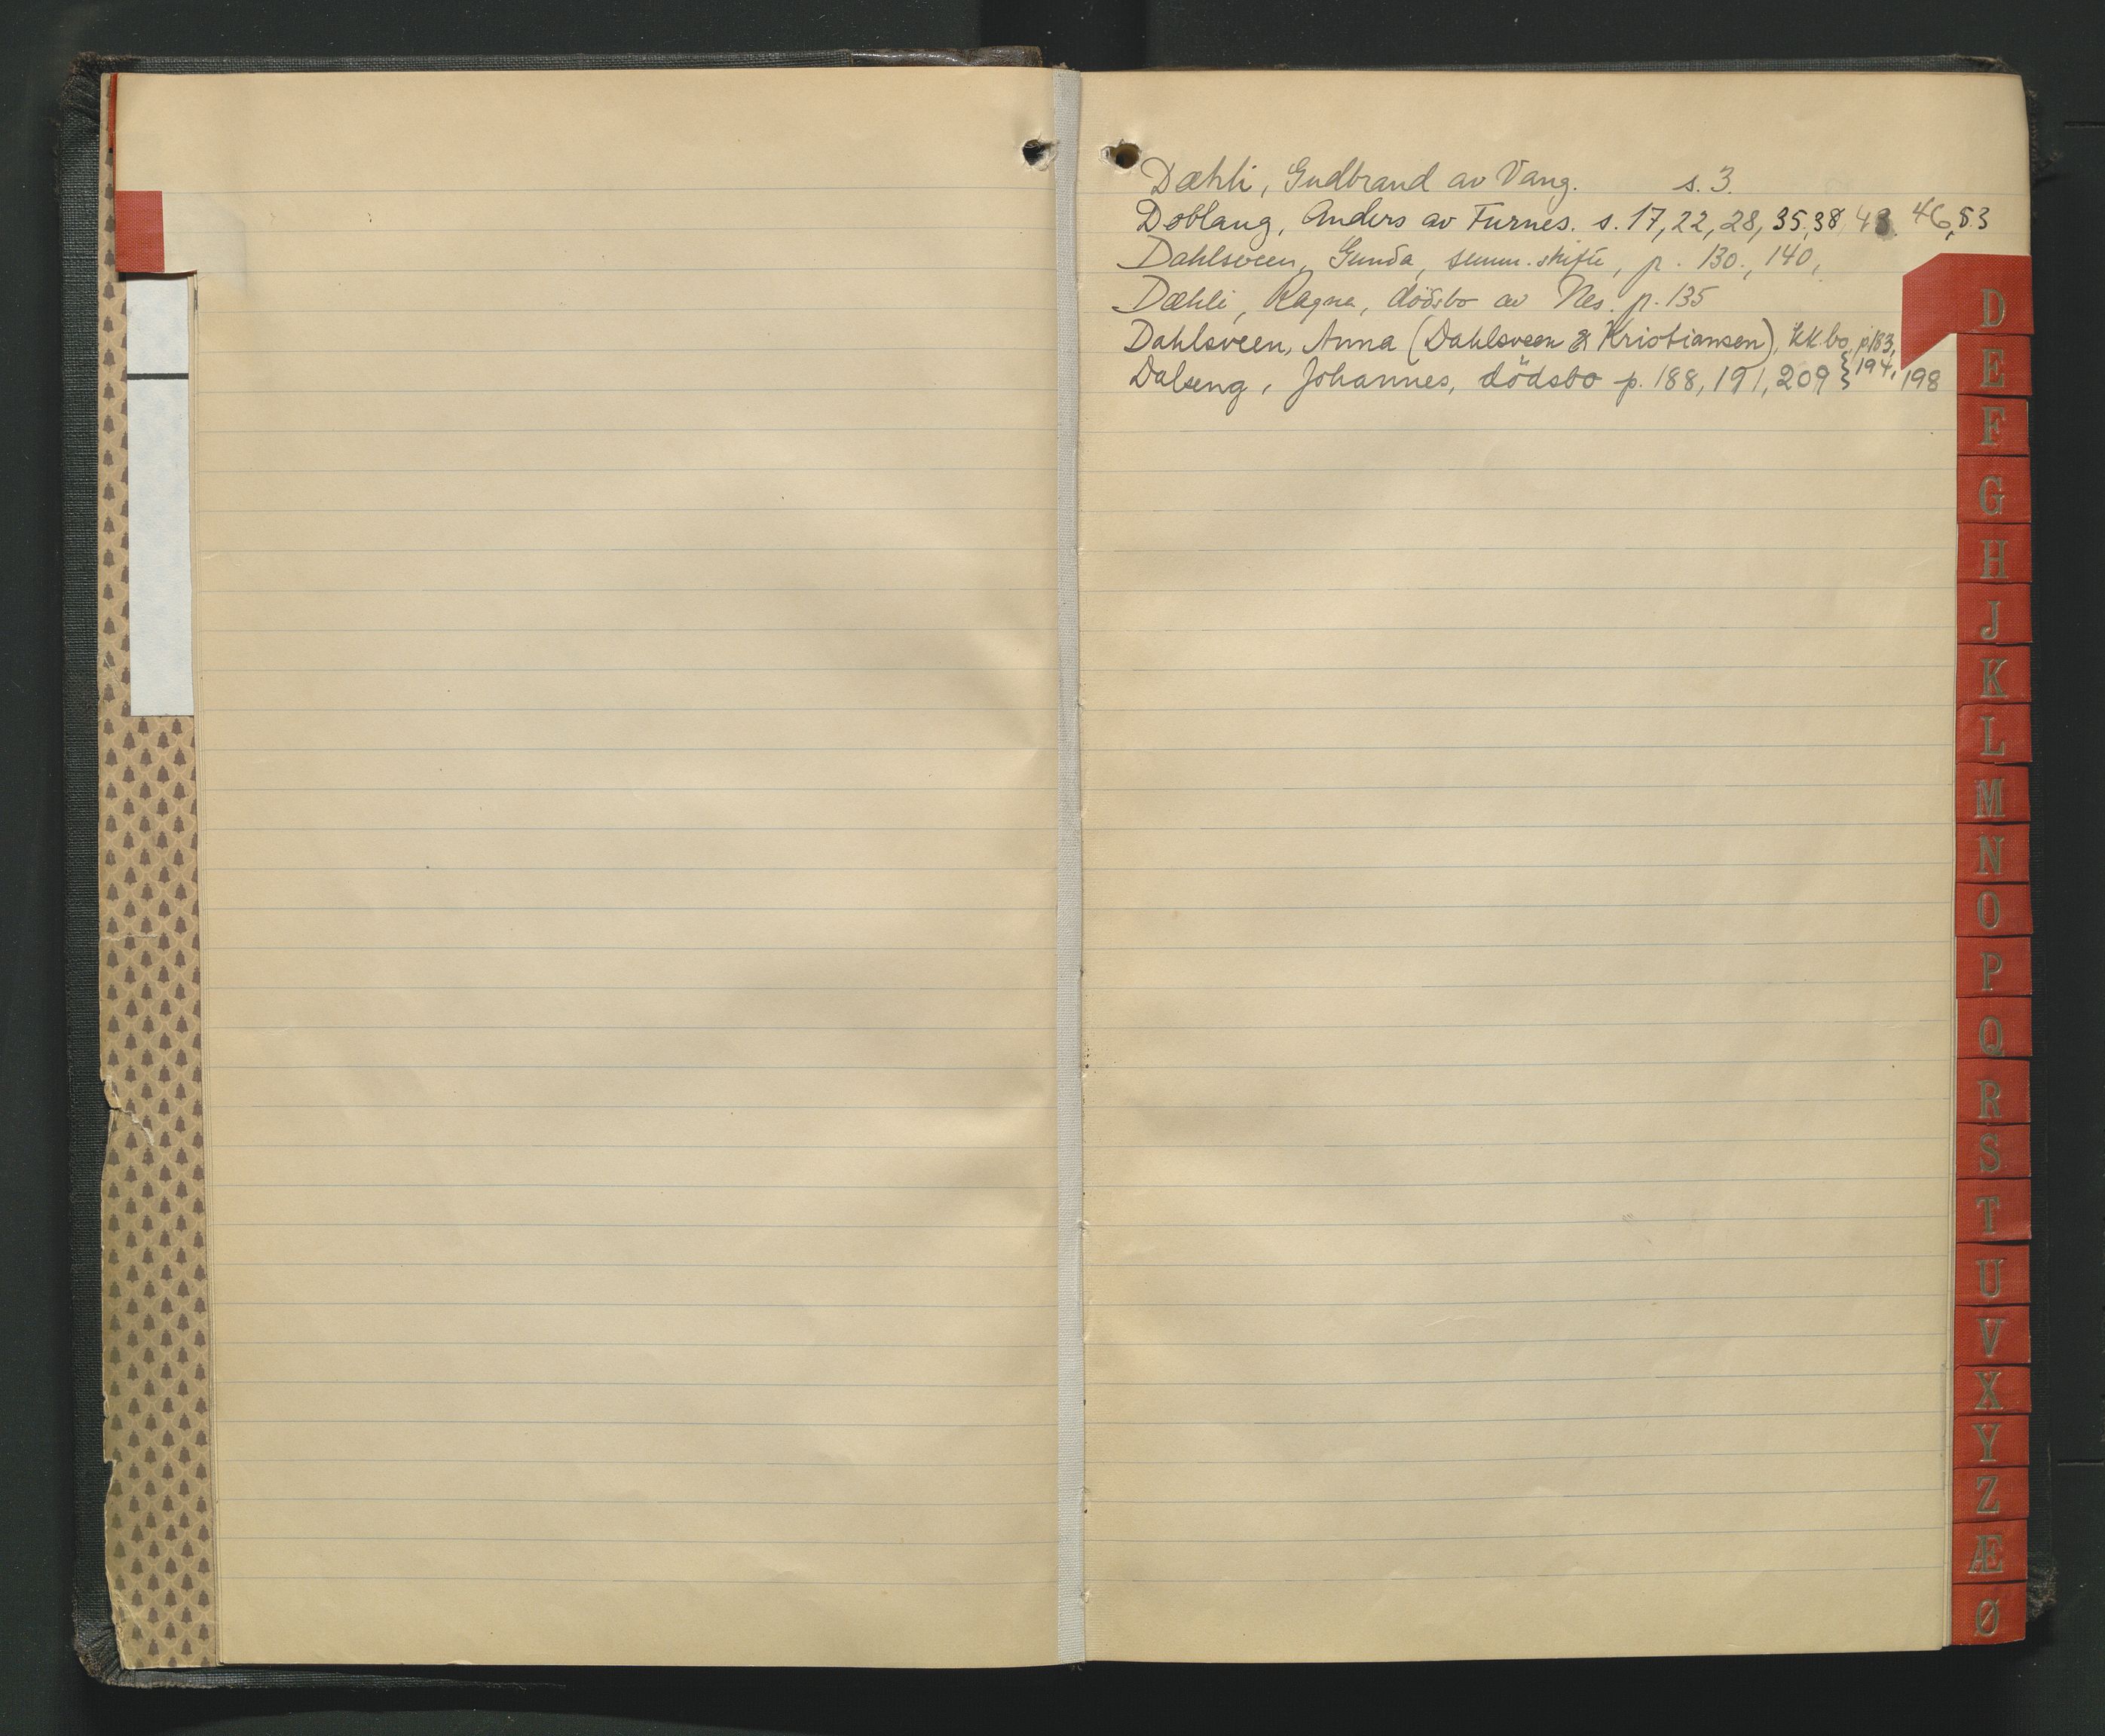 Dæhli, Gudbrand av Vang. s. 3.
Doblaug, Anders av Furnes. s. 17, 22, 28, 35, 38, 43, 46, 53
Dahlsveen, Gunda, summ. skifte, p. 130., 140,
Dæhli, Ragna, dödsbo av Nes. p. 135
Dahlsveen, Anna (Dahlsveen & Kristiansen), kk.bo, p. 183,
194, 198
Dalseng, Johannes, dödsbo p. 188, 191, 209
D
E
F
G
H
J
K
L
M
N
O
P
Q
R
S
T
U
V
X
Y
Z
Æ
Ø